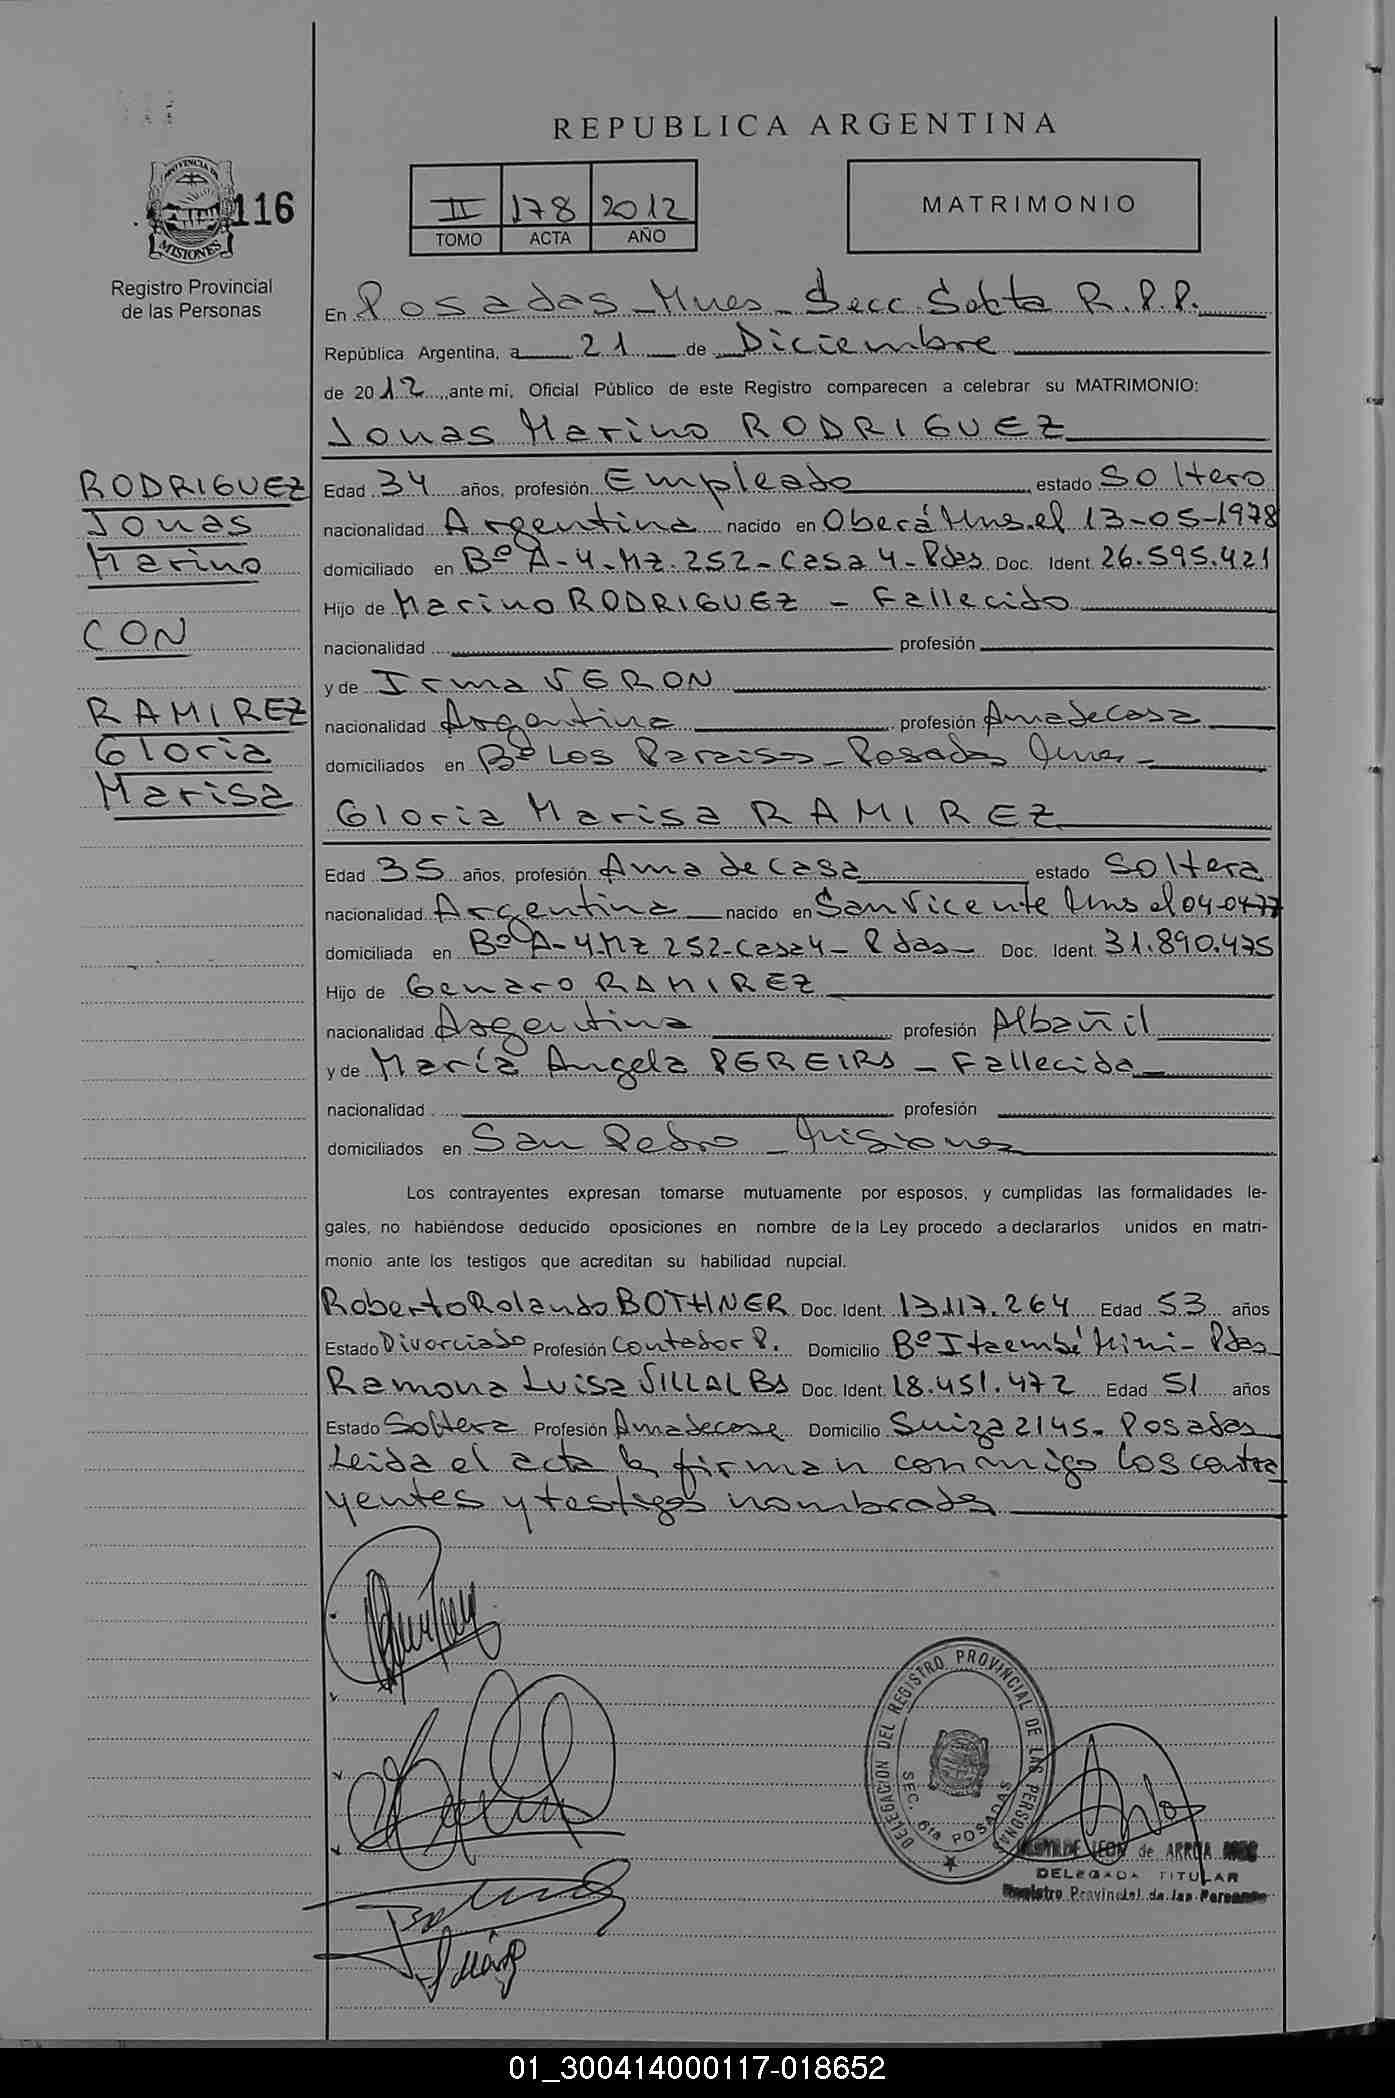 REPUBLICA ARGENTINA
PROVINCIA DE
MISIONES
116
Registro Provincial
de las Personas
II 178 2012
TOMO ACTA AÑO
MATRIMONIO
En Posadas - Mnes - Secc. Sexta R.P.P.
República Argentina, a 21 de Diciembre
de 2012, ante mi, Oficial Público de este Registro comparecen a celebrar su MATRIMONIO:
Jonas Marino RODRIGUEZ
RODRIGUEZ
Jonas
Marino
CON
RAMIREZ
Gloria
Marisa
Edad 34 años, profesión Empleado estado Soltero
nacionalidad Argentina nacido en Oberá Mns. el 13-05-1978
domiciliado en Bº A-4-Mz.252-Casa 4-Pdas Doc. Ident. 26.595.421
Hijo de Marino RODRIGUEZ - Fallecido
nacionalidad profesión
y de Irma VERON
nacionalidad Argentina profesión Ama de casa
domiciliados en Bº Los Paraisos - Posadas Mnes -
Gloria Marisa RAMIREZ
Edad 35 años, profesión Ama de casa estado Soltera
nacionalidad Argentina nacido en San Vicente Mns el 04-04-77
domiciliada en Bº A-4-Mz 252-Casa 4-Pdas- Doc. Ident. 31.890.475
Hijo de Genaro RAMIREZ
nacionalidad Argentina profesión Albañil
y de María Angela PEREIRA - Fallecida -
nacionalidad profesión
domiciliados en San Pedro - Misiones
Los contrayentes expresan tomarse mutuamente por esposos, y cumplidas las formalidades le-
gales, no habiéndose deducido oposiciones en nombre de la Ley procedo a declararlos unidos en matri-
monio ante los testigos que acreditan su habilidad nupcial.
Roberto Rolando BOTHNER Doc. Ident. 13.117.264 Edad 53 años
Estado Divorciado Profesión Contador P. Domicilio Bº Itaembé Mini - Pdas
Ramona Luisa VILLALBA Doc. Ident. 18.451.472 Edad 51 años
Estado Soltera Profesión Ama de casa Domicilio Suiza 2145 - Posadas
Leida el acta la firman conmigo los contra
yentes y testigos nombrados
DELEGACION DEL REGISTRO PROVINCIAL DE LAS PERSONAS
SEC. 6ta POSADAS
LEON de ARRUA
DELEGADA TITULAR
Registro Provincial de las Personas
01_300414000117-018652